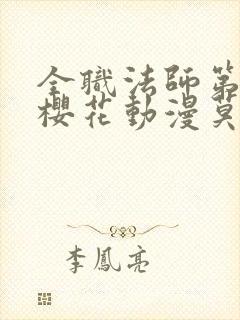 全職法師第
櫻花動漫莫
李鳳亮